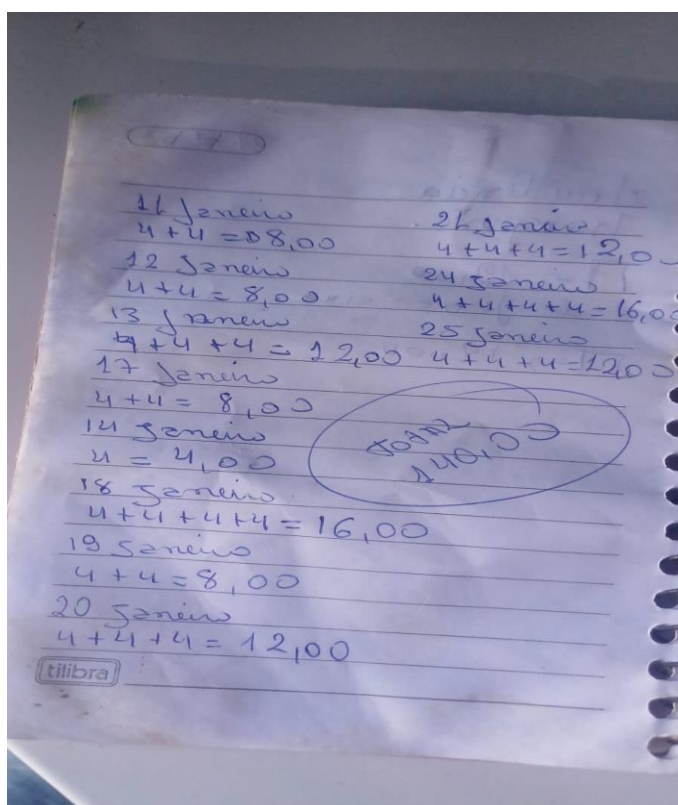 11 Janeiro
4+4=8,00
12 Janeiro
4+4=8,00
13 Janeiro
4+4+4=12,00
17 Janeiro
4+4=8,00
14 Janeiro
4=4,00
18 Janeiro
4+4+4+4=16,00
19 Janeiro
4+4=8,00
20 Janeiro
4+4+4=12,00
tilibra
21 Janeiro
4+4+4=12,0
24 Janeiro
4+4+4+4=16,00
25 Janeiro
4+4+4=12,00
Total
140,00